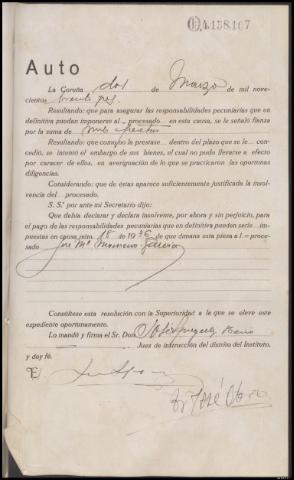 4.158.107
Auto
La Coruña dos de Marzo de mil nove-
cientos treinta y tres.
Resultando: que para asegurar las responsabilidades pecuniarias que en
definitiva puedan imponerse al procesado en esta causa, se le señaló fianza
por la suma de mil pesetas
Resultando: que como no la prestase dentro del plazo que se le con-
cedió, se intentó el embargo de sus bienes, el cual no pudo llevarse a efecto
por carecer de ellos, en averiguación de lo que se practicaron las oportunas
diligencias.
Considerando: que de éstas aparece suficientemente justificada la insol-
vencia del procesado.
S. Sª. por ante mí Secretario dijo:
Que debía declarar y declara insolvente, por ahora y sin perjuicio, para
el pago de las responsabilidades pecuniarias que en definitiva puedan serle im-
puestas en causa núm. 18 de 193 de que dimana esta pieza al proce-
sado José Mª Moreno García
Consúltese esta resolución con la Superioridad a la que se eleve este
expediente oportunamente.
Lo mandó y firma el Sr. Don
Juez de instrucción del distrito del Instituto,
y doy fé.
José